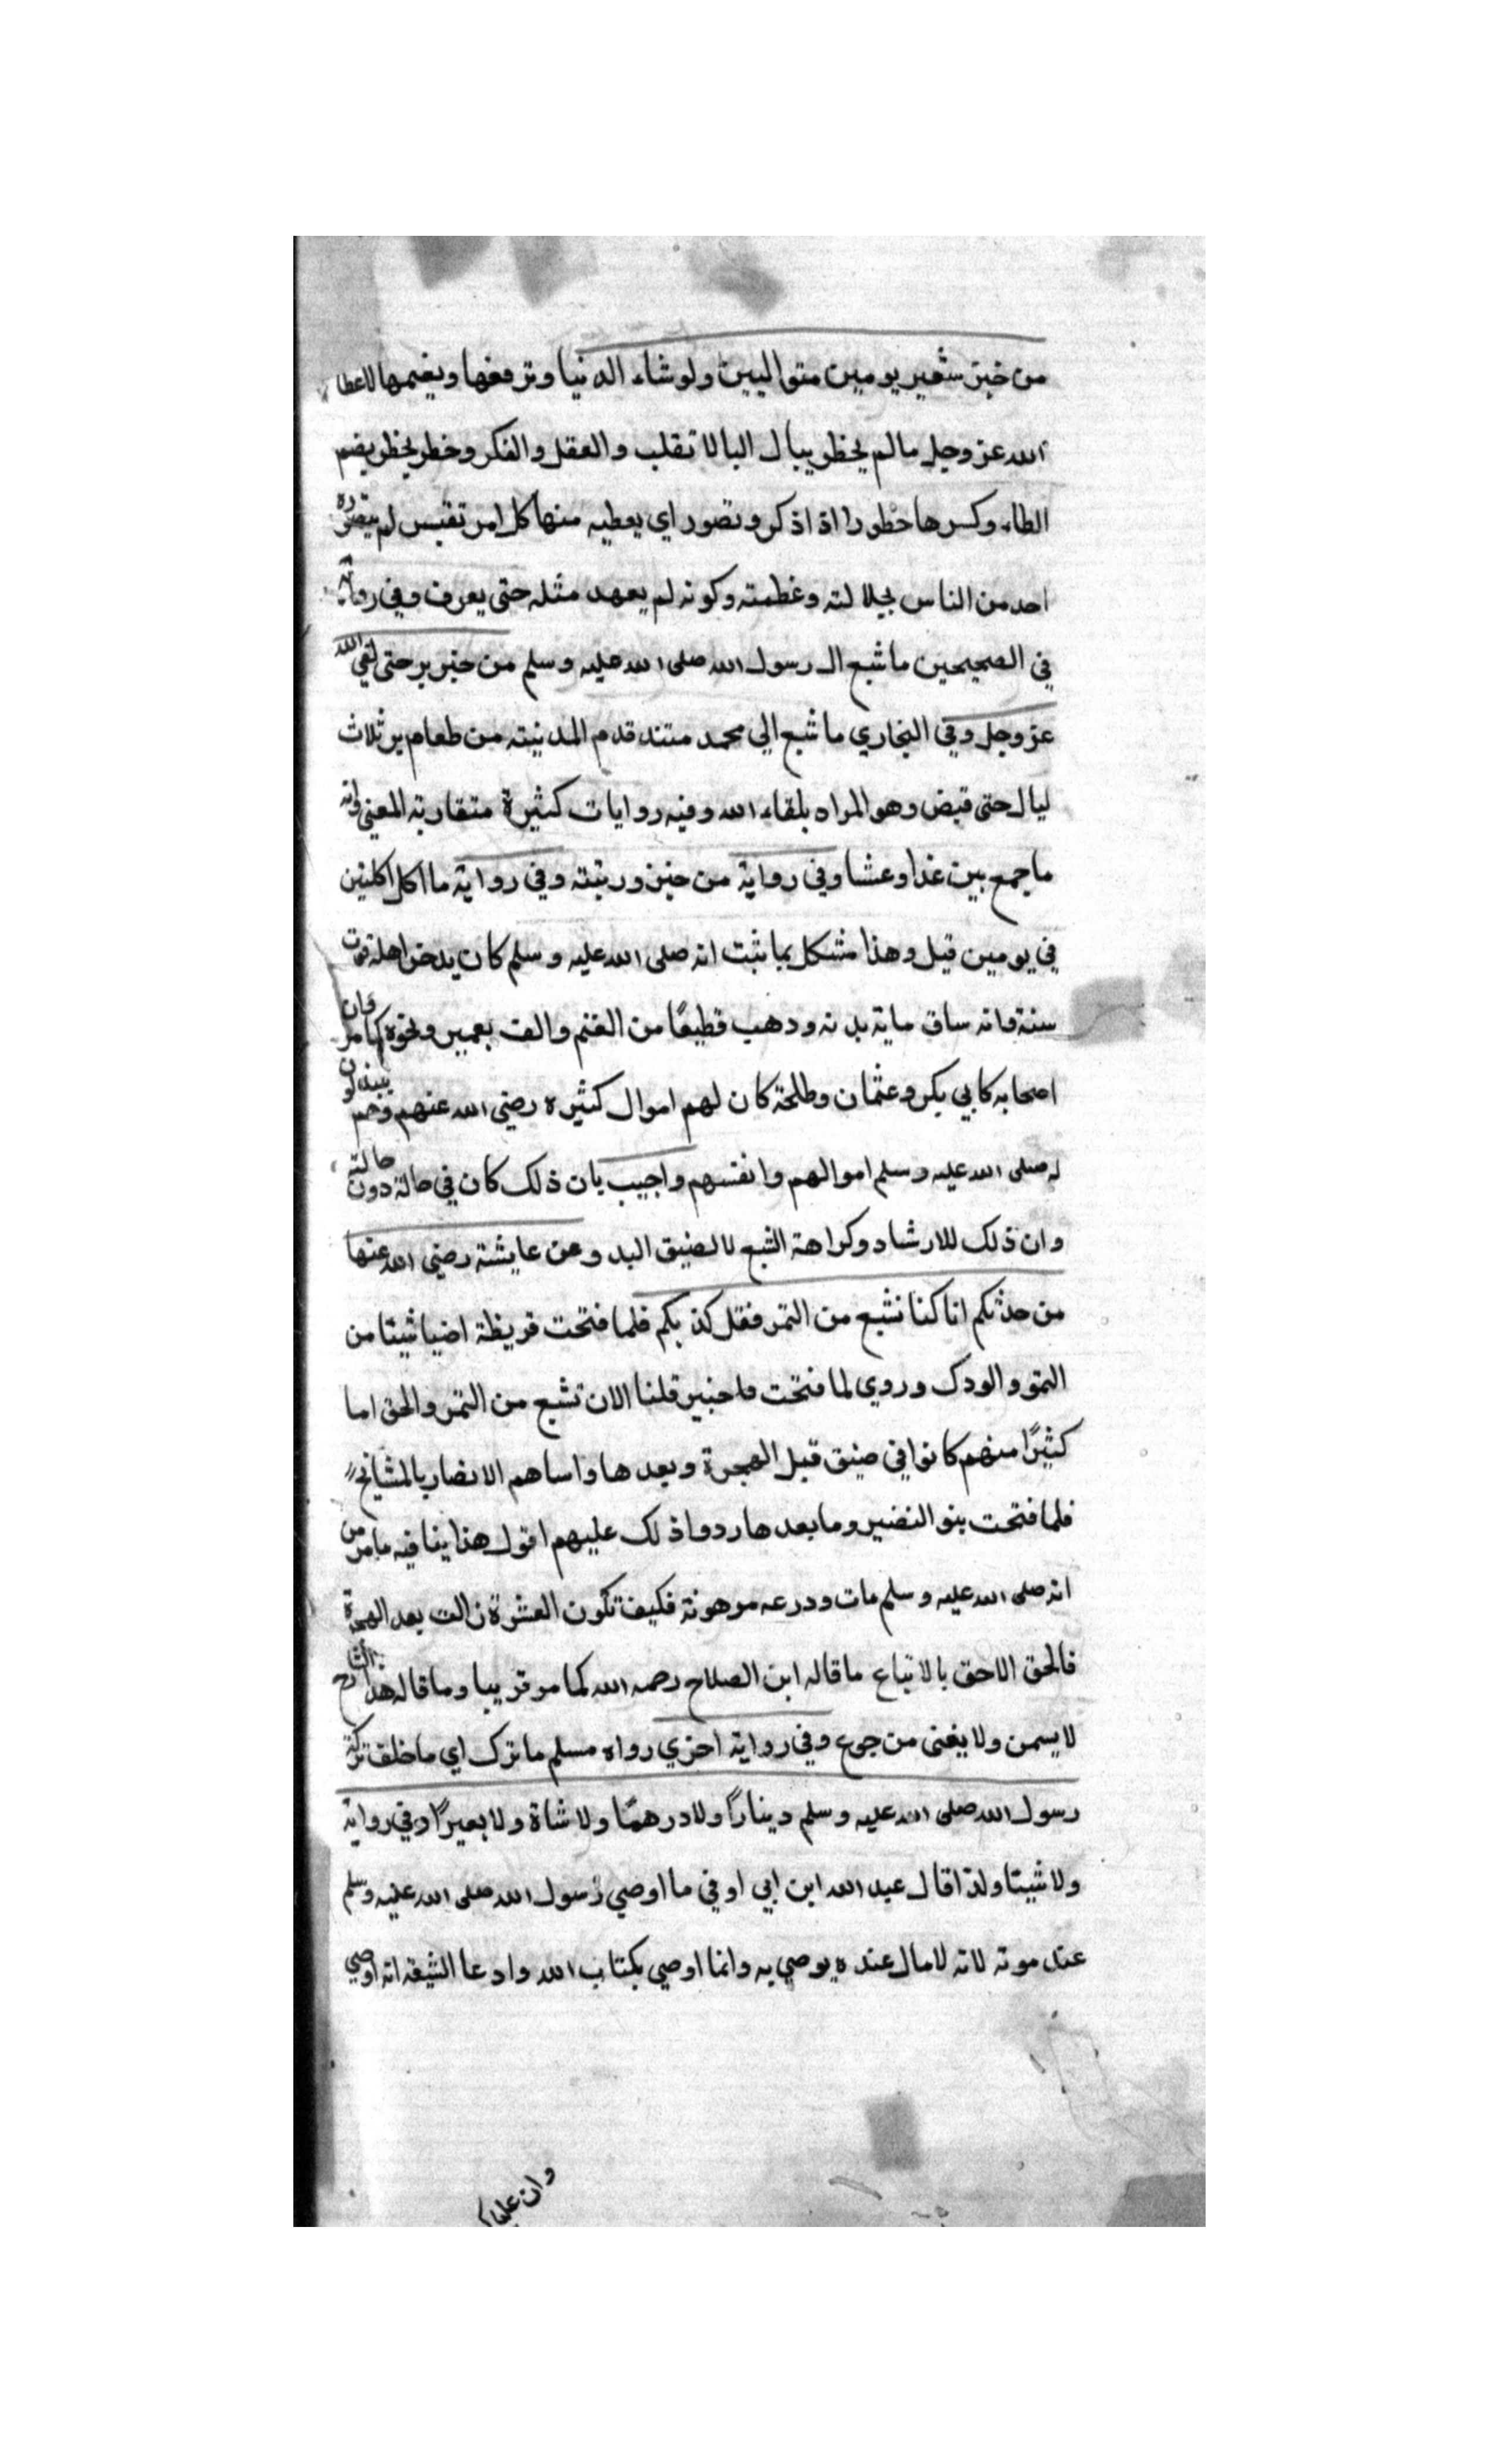 من خبز شعير يومين متواليين ولو شاء الدنيا وترفعها ونعيمها لاعطا
الله عز وجل مالم يخطر ببال البالا تقلب والعقل والفكر وخطر يخطر بضم
الطاء وكسرها خطورا اذا ذكر وتصور اي يعطيه منها كل امر نفيس لم يتصوره
احد من الناس لجلالته وعظمته وكونه لم يعهد مثله حتى يعرف وفي رواية
في الصحيحين ما شبع ال رسول الله صلى الله عليه وسلم من خبز بر حتى لقي الله
عز وجل وفي البخاري ما شبع الي محمد منذ قدم المدينة من طعام بر ثلاث
ليال حتى قبض وهو المراد بلقاء الله وفيه روايات كثيرة متقاربة المعنى وانه
ما جمع بين غدا وعشا وفي رواية من خبز وزيته وفي رواية ما اكل اكلتين
في يومين قيل وهذا مشكل بما ثبت انه صلى الله عليه وسلم كان يدخر اهله قوت
سنة وانه ساق ماية بدنه ودهب قطيعًا من الغنم والف بعير ونحوه كما مر وان
اصحابه كابي بكر وعثمان وطلحة كان لهم اموال كثيره رضي الله عنهم وهم يبذلون
له صلى الله عليه وسلم اموالهم وانفسهم واجيب بان ذلك كان في حالة دون حالته
وان ذلك للارشاد وكراهة الشبع لا لضيق اليد وعن عايشة رضي الله عنها
من حدثكم انا كنا نشبع من التمر فقد كذبكم فلما فتحت قريظة اصبنا شيئا من
التمر والودك وروي لما فتحت خيبر قلنا الان نشبع من التمر والحق اما
كثيرًا منهم كانوا في ضيق قبل الهجرة وبعدها واساهم الانصار بالمنايح
فلما فتحت بنو النضير وما بعدها ردوا ذلك عليهم اقول هذا ينا فيه ما مر من
انه صلى الله عليه وسلم مات ودرعه مرهونة فكيف تكون العشرة زالت بعد الهجرة
فالحق الاحق بالاتباع ما قاله ابن الصلاح رحمه الله كما مر قريبا وما قاله هذا الشارح
لا يسمن ولا يغنى من جوع وفي رواية اخري رواه مسلم ما ترك اي ما خلف تركة
رسول الله صلى الله عليه وسلم دينارًا ولا درهمًا ولا شاة ولا بعيرًا وفي رواية
ولا شيئا ولذا قال عبد الله ابن ابي اوفي ما اوصي رسول الله صلى الله عليه وسلم
عند موته لانه لا مال عنده يوصي به وانما اوصي بكتاب الله وادعا الشيعة انه اوصي
وان علما